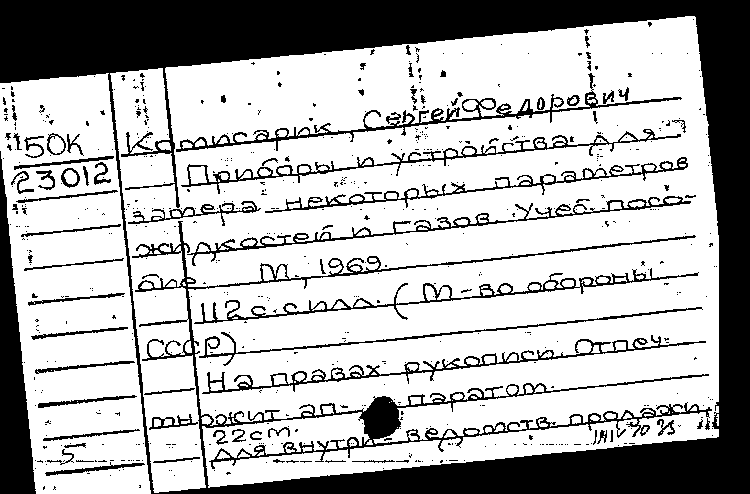 50К
23012
Комисарик, Сергей Федорович
Приборы и устройства для
замера некоторых параметров
жидкостей и газов. Учеб. посо-
бие. М., 1969.
112 с. с илл. (М-во обороны
СССР)
На правах рукописи. Отпеч.
множит. ап- паратом.
22 см.
Для внутри- ведомств. продажи.
5